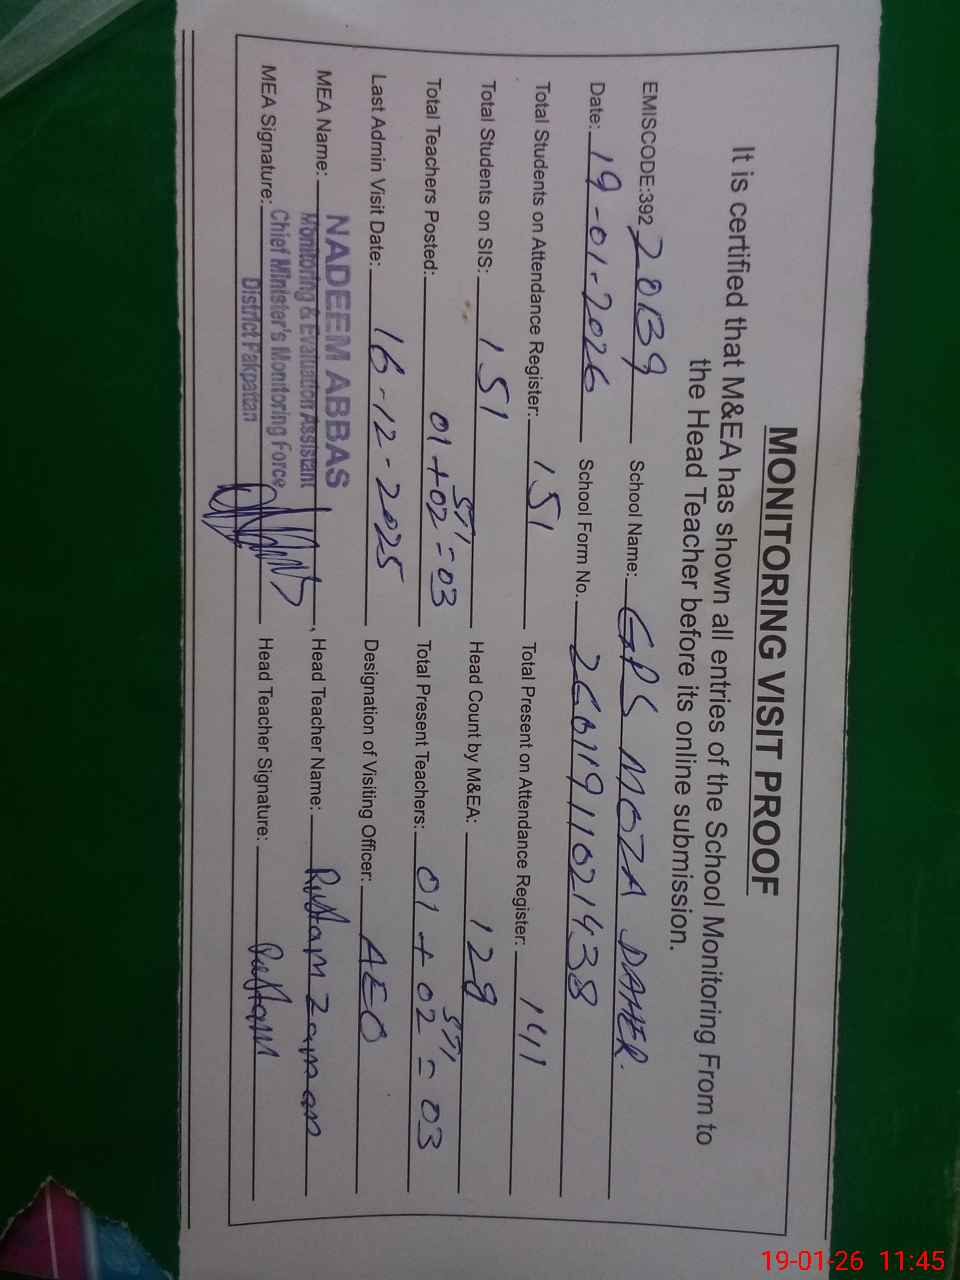 MONITORING VISIT PROOF
It is certified that M&EA has shown all entries of the School Monitoring From to
the Head Teacher before its online submission.
EMISCODE:392 20139 School Name: GPS MOZA DAHER.
Date: 19-01-2026 School Form No. 26011911021438
Total Students on Attendance Register: 151 Total Present on Attendance Register: 141
Total Students on SIS: 151 Head Count by M&EA: 128
Total Teachers Posted: 01 + 02 STI = 03 Total Present Teachers: 01 + 02 STI = 03
Last Admin Visit Date: 16-12-2025 Designation of Visiting Officer: AEO
MEA Name: NADEEM ABBAS, Head Teacher Name: Rustam Zaman
Monitoring & Evaluation Assistant
Chief Minister's Monitoring Force
District Pakpattan
MEA Signature: Head Teacher Signature: Rustam
19-01-26 11:45